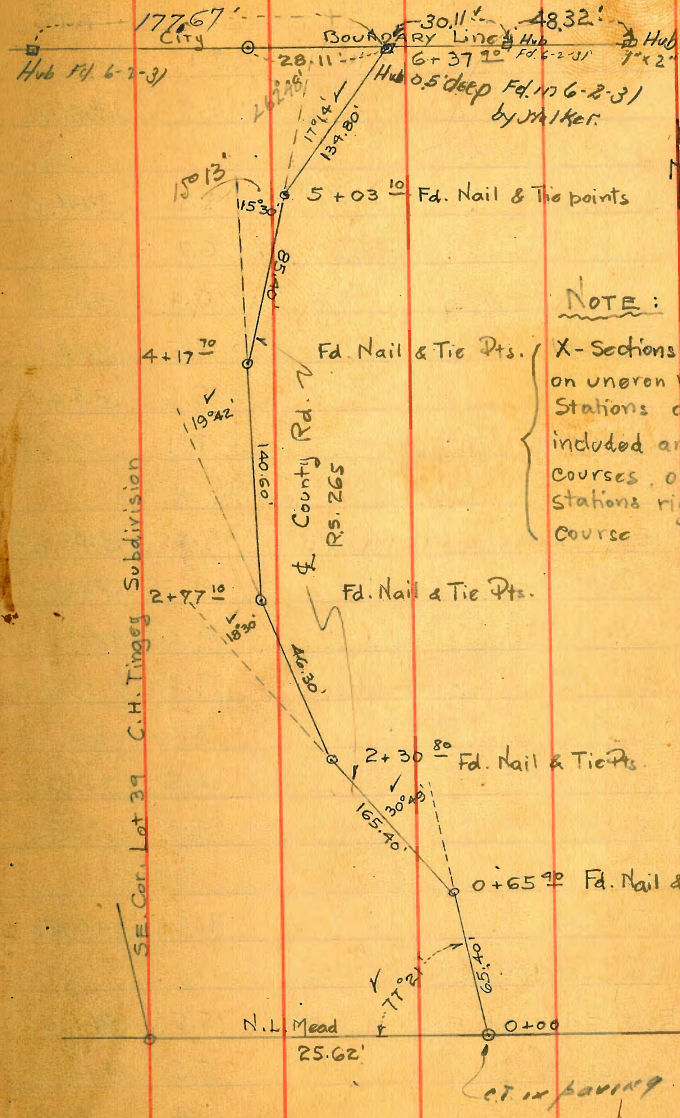 177.67'
30.11'
48.32'
City
Boundary Line
Hub
Hub
Hub Fd. 6-2-31
28.11'
6+37 90
Fd. 6-2-31
1" x 2"
Hub 0.5' deep Fd. in 6-2-31
by Walker.
26°48'
17°14'
134.80'
15°13'
15°30'
5 + 03 10 Fd. Nail & Tie points
85.40'
NOTE:
4+17 70
Fd. Nail & Tie Pts.
X-Sections
on uneven
Stations
included
courses
Stations
course
19°42'
140.60'
℄ County Rd.
RS. 265
SE. Cor. Lot 39 C.H. Tingey Subdivision
2+77 10
Fd. Nail & Tie Pts.
18°30'
46.30'
2+30 80 Fd. Nail & Tie Pts.
30°49'
165.40'
0+65 40 Fd. Nail &
65.40'
77°21'
N.L. Mead
0+00
25.62'
C.T. in paving